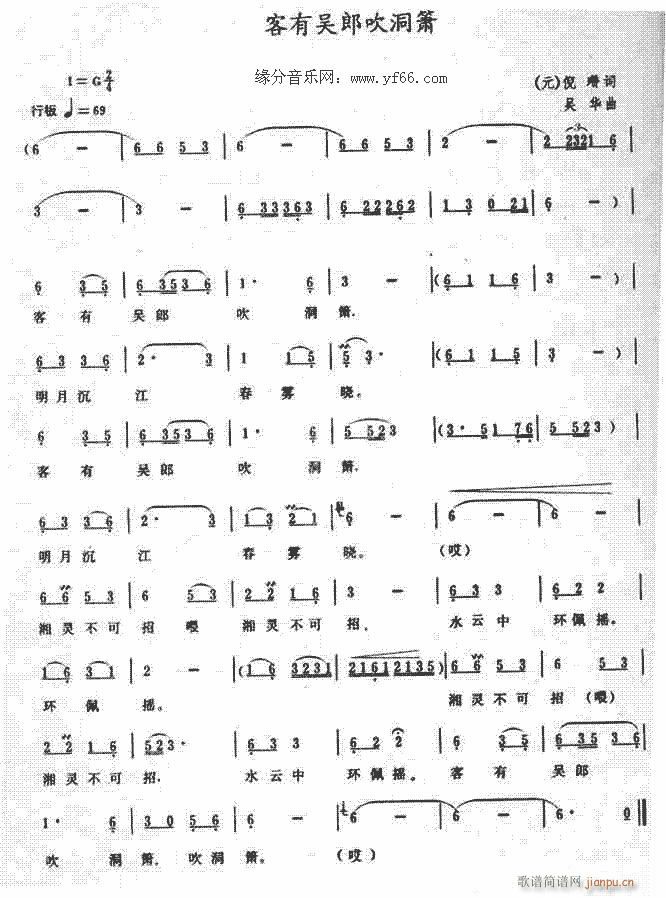 客有吴郎吹洞箫
1=G 2/4
缘分音乐网：www.yf66.com
(元)倪瓒词
行板 ♩=69
吴华曲
(6 - | 6 6 5 3 | 6 - | 6 6 5 3 | 2 - | 2 2321 6 |
3 - | 3 - | 6 33363 | 6 22262 | 1 3 0 21 | 6 - ) |
6 3 5 | 6 353 6 | 1· 6 | 3 - | (6 1 1 6 | 3 - ) |
客有吴郎吹洞箫，
6 3 3 6 | 2· 3 | 1 1 5 | 5 3· | (6 1 1 5 | 3 - ) |
明月沉江春雾晓。
6 3 5 | 6 353 6 | 1· 6 | 5 523 | (3· 5 1 76 | 5 523 ) |
客有吴郎吹洞箫，
6 3 3 6 | 2· 3 | 1 3 2 1 | 6 - | 6 - | 6 - |
明月沉江春雾晓。（哎）
6 6 5 3 | 6 5 3 | 2 2 1 6 | 3 - | 6 3 3 | 6 2 2 |
湘灵不可招喂湘灵不可招，水云中环佩摇。
1 6 3 1 | 2 - | (1 6 3231 | 2161 2135) | 6 6 5 3 | 6 5 3 |
环佩摇。湘灵不可招（喂）
2 2 1 6 | 523· | 6 3 3 | 6 2 2 | 6 3 5 | 6 35 3 6 |
湘灵不可招，水云中环佩摇。客有吴郎
1· 6 | 3 0 5 6 | 6 - | 6 - | 6 - | 6· 0 ‖
吹洞箫，吹洞箫。（哎）
歌谱简谱网 jianpu.cn